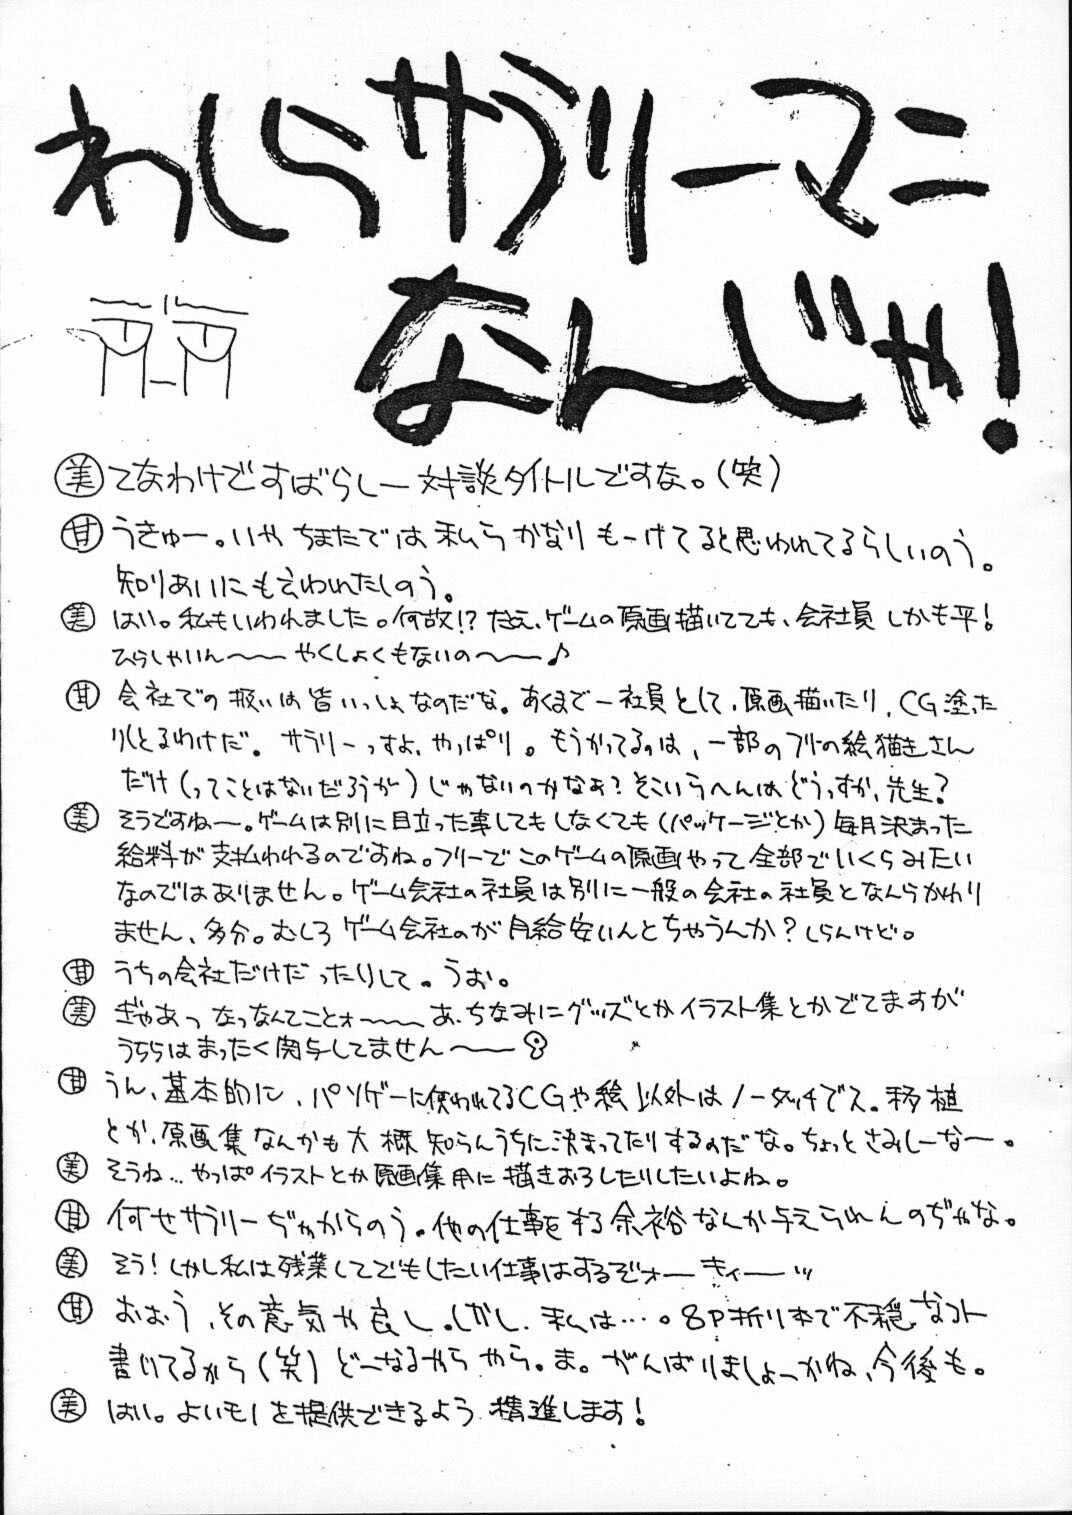 わしらサラリーマン
なんじゃ!
美 てなわけですばらしー対談タイトルですな。(笑)
甘 うきゅー。いや ちまたでは 私ら かなり もーけてると思われてるらしいのう。
知りあいにも言われたしのう。
美 はい。私もいわれました。何故!? たとえ、ゲームの原画描いてても、会社員 しかも平!
ひらしゃいん〜〜 やくしょくもないの〜〜♪
甘 会社での扱いは皆いっしょなのだな。あくまで一社員として、原画描いたり、CG塗った
りしとるわけだ。 サラリーっすよ、やっぱり。もうかってるのは、一部のフリーの絵描きさん
だけ(ってことはないだろうが)じゃないのかなぁ? そこいらへんはどうっすか、先生?
美 そうですね〜。ゲームは別に目立った事してもしなくても(パッケージとか)毎月決まった
給料が支払われるのですね。フリーでこのゲームの原画やって全部でいくらみたい
なのではありません。ゲーム会社の社員は別に一般の会社の社員となんらかわり
ません、多分。むしろ ゲーム会社のが月給安いんとちゃうんか? しらんけど。
甘 うちの会社だけだったりして。うお。
美 ぎゃあっ なっなんてことォ〜〜 あ、ちなみにグッズとかイラスト集とかでてますが
うちらはまったく関与してません〜〜
甘 うん、基本的に、パソゲーに使われてるCGや絵以外はノータッチでス。移植
とか、原画集なんかも大概知らんうちに決まってたりするのだな。ちょっとさみしーなー。
美 そうね… やっぱイラストとか原画集用に描きおろしたりしたいよね。
甘 何せサラリーぢゃからのう。他の仕事をする余裕なんか与えられんのぢゃな。
美 そう! しかし私は残業してでもしたい仕事はするぞォー キィーーッ
甘 おおう、その意気や良し。しかし、私は…。8P折り本で不穏なコト
書いてるから(笑) どーなるやらやら。ま。がんばりましょーかね、今後も。
美 はい。よいモノを提供できるよう 精進します!